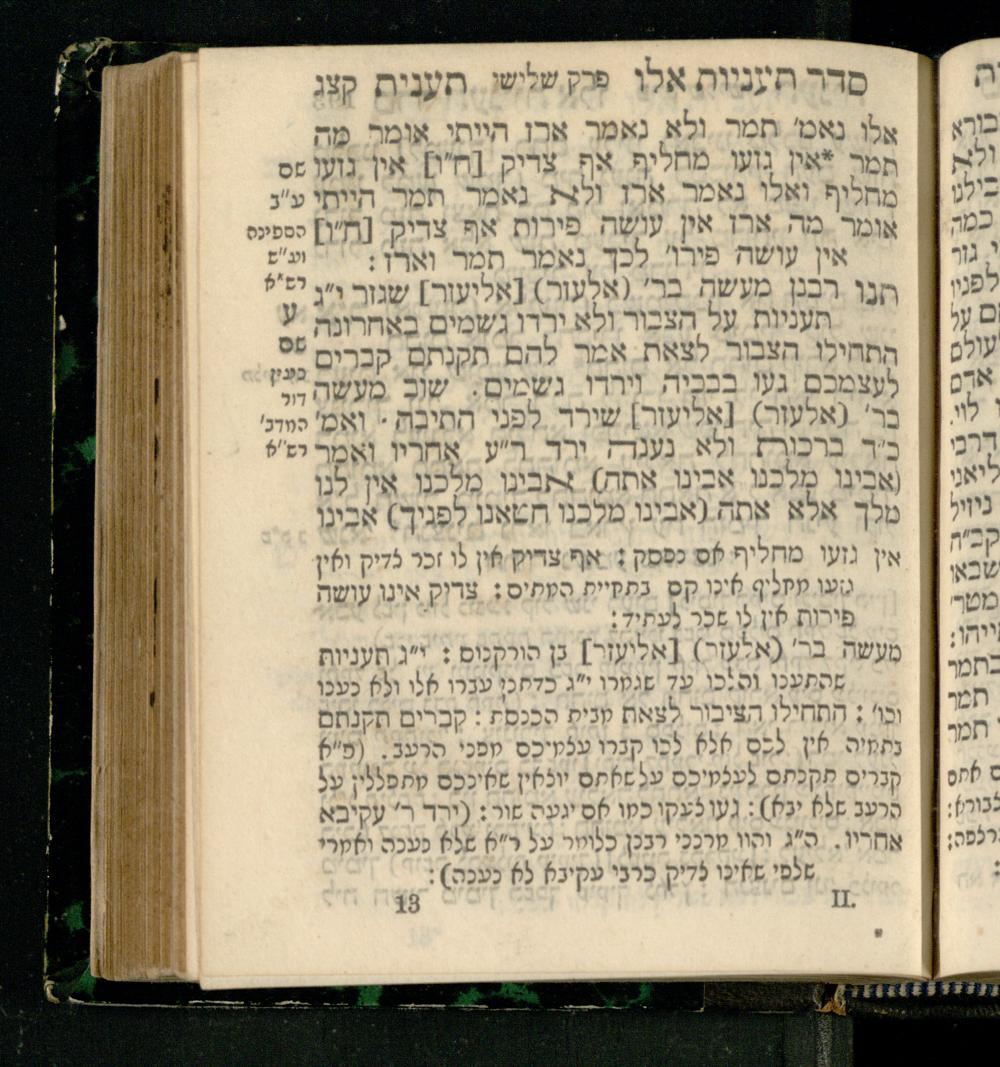 סדר תעניות אלו פרק שלישי תענית קצג
אלו נאמ׳ תמר ולא נאמר ארז הייתי אומר מה
תמר *אין גזעו מחליף אף צדיק [ח״ו] אין גזעו
מחליף ואלו נאמר ארז ולא נאמר תמר הייתי
אומר מה ארז אין עושה פירות אף צדיק [ח״ו]
אין עושה פירו׳ לכך נאמר תמר וארז :
תנו רבנן מעשה בר׳ (אלעזר) [אליעזר] שגזר י״ג
תעניות על הצבור ולא ירדו גשמים באחרונה
התחילו הצבור לצאת אמר להם תקנתם קברים
לעצמכם געו בבכיה וירדו גשמים. שוב מעשה
בר׳ (אלעזר) [אליעזר] שירד לפני התיבה · ואמ׳
כ״ד ברכות ולא נענה ירד ר״ע אחריו ואמר
(אבינו מלכנו אבינו אתה) אבינו מלכנו אין לנו
מלך אלא אתה (אבינו מלכנו חטאנו לפניך) אבינו
שם
ע״ב
הספינה
וע״ש
רש״א
ע
שם
דור
המדב׳
רש״א
אין גזעו מחליף אם נפסק : אף צדיק אין לו זכר צדיק ואין
גזעו מחליף אינו קם בתחיית המתים : צדיק אינו עושה
פירות אין לו שכר לעתיד :
מעשה בר׳ (אלעזר) [אליעזר] בן הורקנוס : י״ג תעניות
שהתענו והלכו עד שגמרו י״ג כדתנן עברו אלו ולא נענו
וכו׳ : התחילו הציבור לצאת מבית הכנסת : קברים תקנתם
בתמיה אין לכם אלא לכו קברו עצמיכם מפני הרעב. (פ״א
קברים תקנתם לעצמיכם על שאתם יוצאין שאינכם מתפללין על
הרעב שלא יבא) : געו צעקו כמו אם יגעה שור : (ירד ר׳ עקיבא
אחריו. ה״ג והוו מרנני רבנן כלומר על ר״א שלא נענה ואמרי
שלפי שאינו צדיק כרבי עקיבא לא נענה) :
II. 13